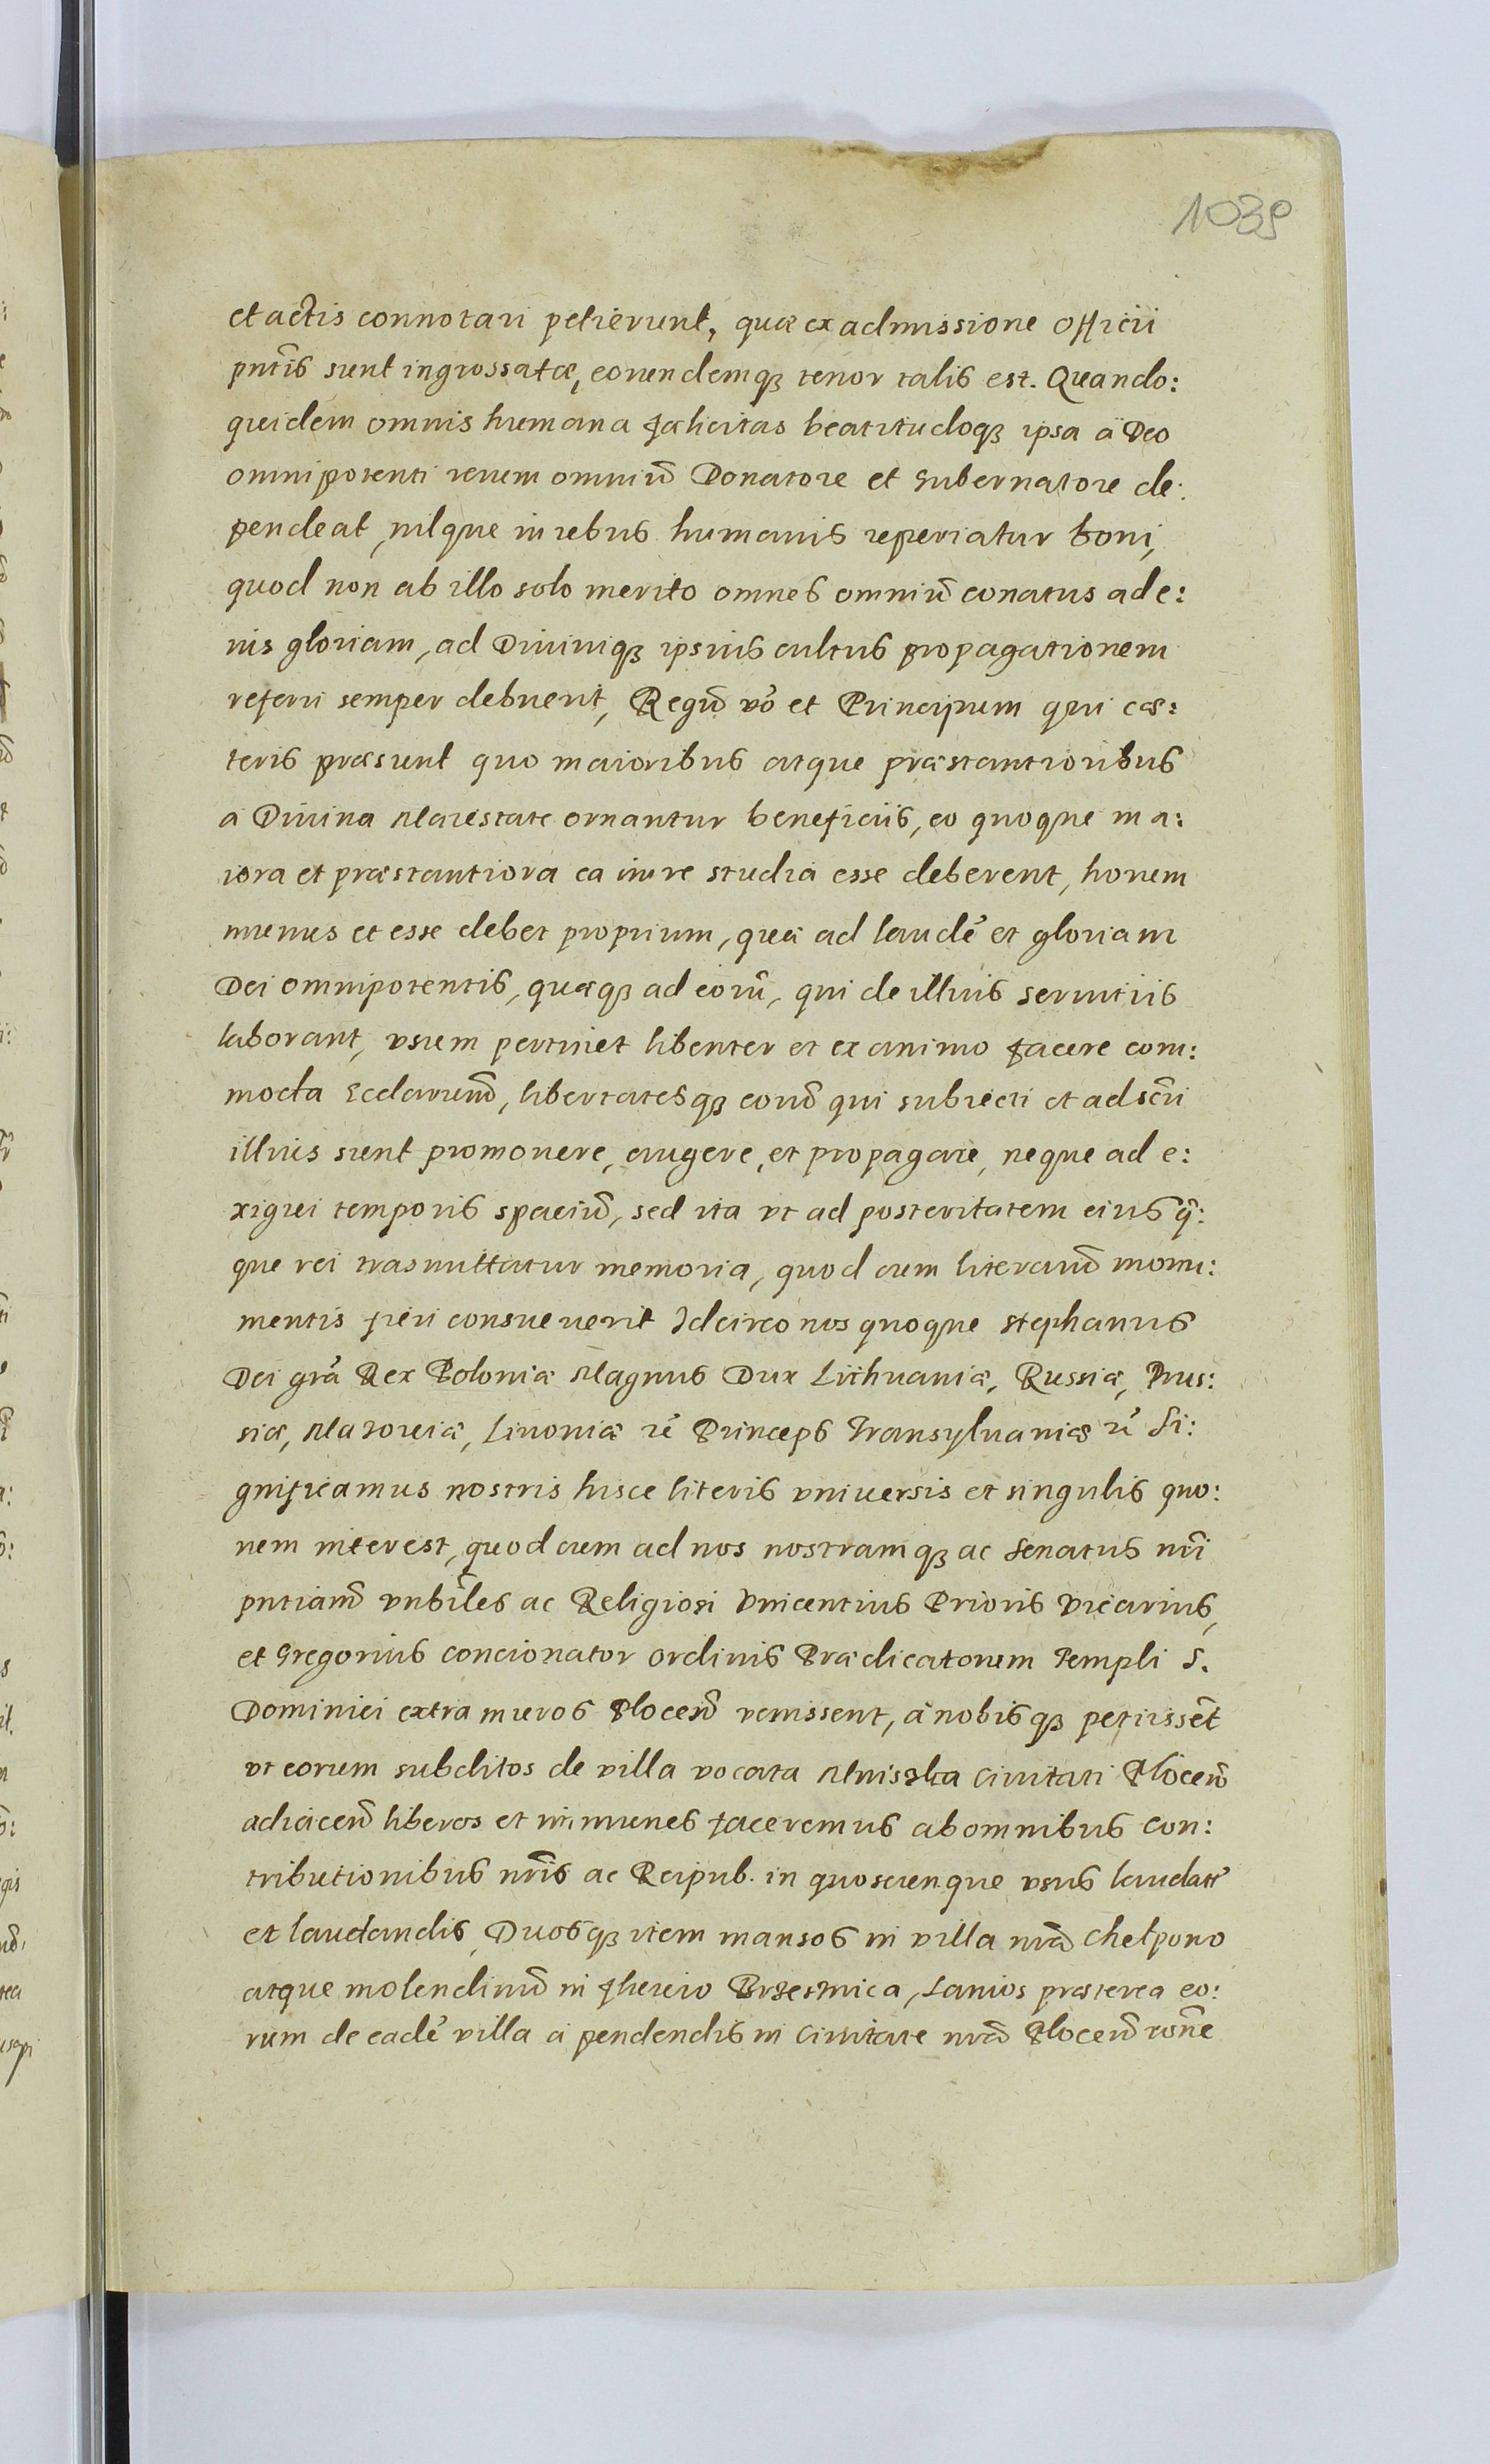 1039
et actis connotari petierunt, quæ ex admissione Officii
pntis sunt ingrossatæ, eorundemq; tenor talis est. Quando:
quidem omnis humana fælicitas beatitudoq; ipsa à Deo
omnipotenti rerum omniũ Donatore et Gubernatore de:
pendeat, nilque in rebus humanis reperiatur boni,
quod non ab illo solo merito omnes omniũ conatus ad e:
ius gloriam, ad Diuiniq; ipsius cultus propagationem
referri semper debuerit, Regũ võ et Principum qui cæ:
teris præsunt quo maioribus atque præstantioribus
a Diuina Maiestate ornantur beneficiis, eo quoque ma:
iora et præstantiora ea iure studia esse deberent, horum
munus et esse debet proprium, quæ ad laudẽ et gloriam
Dei omnipotentis, quæq; ad eorũ, qui de illius seruitiis
laborant, vsum pertinet libenter et ex animo facere com:
moda Ecclarum̃, libertatesq; eorũ qui subiecti et adscrĩ
illius sunt promouere, augere, et propagare, neque ad e:
xigui temporis spaciũ, sed ita vt ad posteritatem eius q̃:
que rei trasmittatur memoria, quod cum literarũ monu:
mentis fieri consueuerit Idcirco nos quoque Stephanus
Dei grã Rex Poloniæ Magnus Dux Lithuaniæ, Russiæ, Prus:
siæ, Mazouiæ, Liuoniæ rẽ Princeps Transyluaniæ rẽ Si:
gnificamus nostris hisce literis vniuersis et singulis quo:
rum interest, quod cum ad nos nostramq; ac Senatus nrĩ
pntiam̃ vnbĩles ac Religiosi Vincentius Prioris Vicarius,
et Gregorius Concionator Ordinis Prædicatorum Templi S.
Dominici extra muros Plocen̄ venissent, à nobisq; petiissẽt
vt eorum subditos de villa vocata civitati Plocen̄
adiacen̄ liberos et immunes faceremus ab omnibus con:
tributionibus nrĩs ac Reipub. in quoscunque vsus laudatˀ
et laudandis, Duosq; item mansos in villa nrã Chelpono
atque molendinũ in fluvio Brzesznica, Lanios præterea eo:
rum de eadẽ villa a pendendis in Ciuitate nrã Plocen̄ rõne